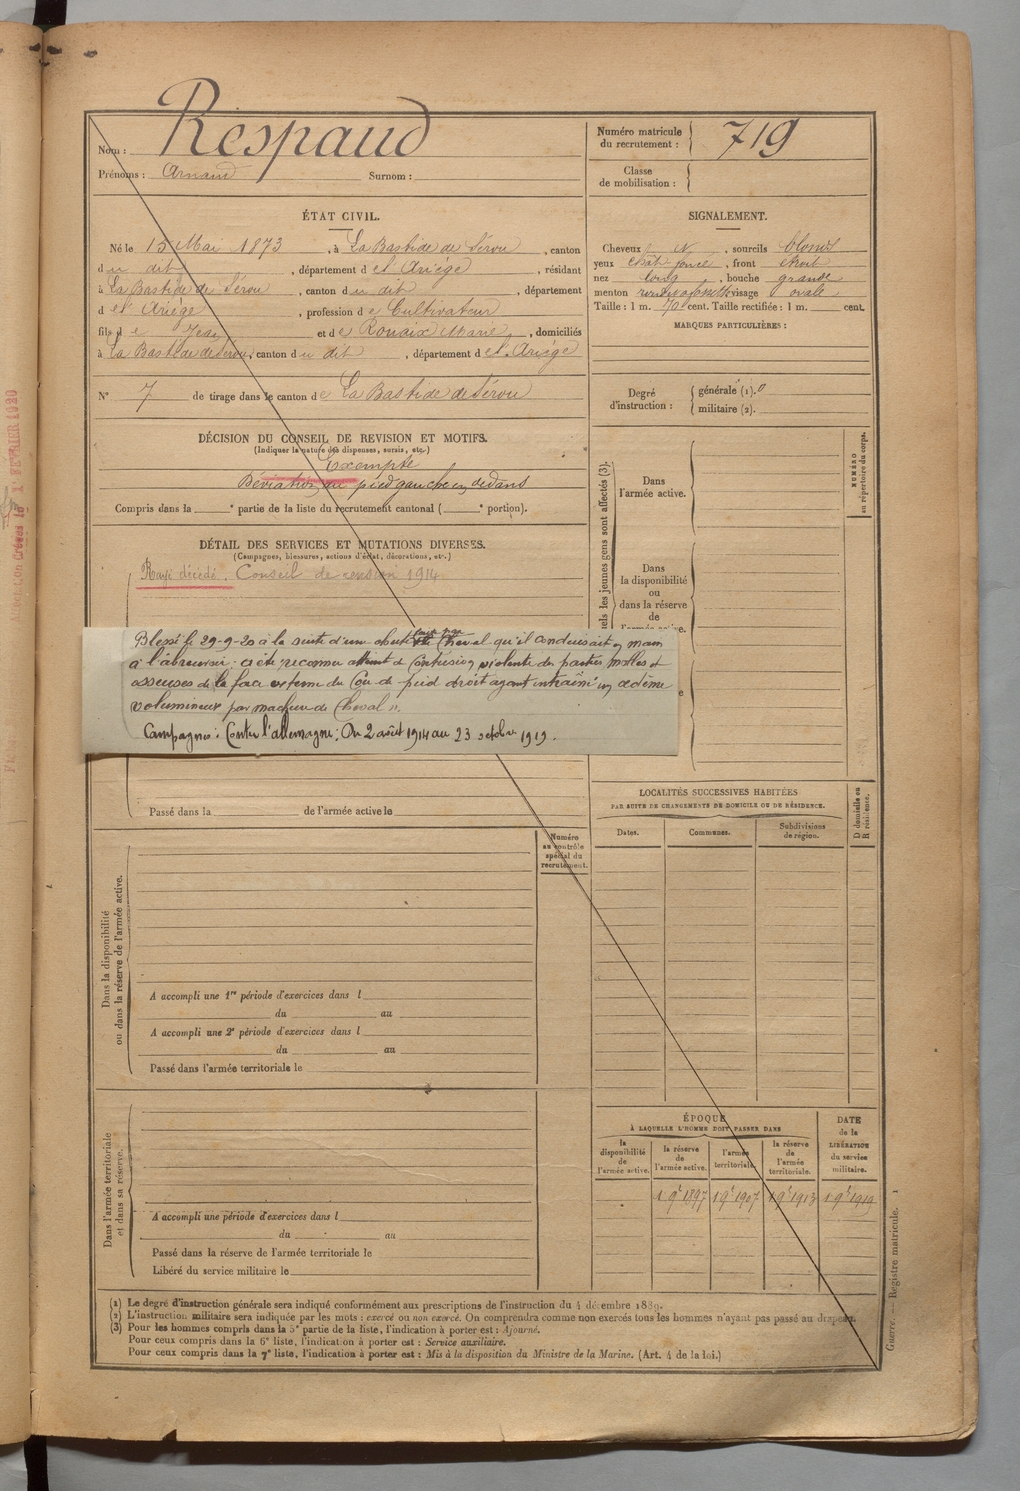 Nom : Respaud
Prénoms : Arnaud Surnom :
Numéro matricule du recrutement : 719
Classe de mobilisation :
ÉTAT CIVIL.
Né le 15 Mai 1873, à La Bastide de Sérou, canton
du dit, département de l'Ariége, résidant
à La Bastide de Sérou, canton du dit, département
de l'Ariége, profession de Cultivateur
fils de Jean et de Rouaix Marie, domiciliés
à La Bastide de Sérou, canton du dit, département de l'Ariége
N° 7 de tirage dans le canton de La Bastide de Sérou
SIGNALEMENT.
Cheveux N, sourcils blonds
yeux chât foncé, front étroit
nez long, bouche grande
menton rond à fossette visage ovale
Taille : 1 m. 70 cent. Taille rectifiée : 1 m. cent.
MARQUES PARTICULIÈRES :
Degré d'instruction : générale (1). 0
militaire (2).
DÉCISION DU CONSEIL DE REVISION ET MOTIFS.
(Indiquer la nature des dispenses, sursis, etc.)
Exempté
Déviation du pied gauche en dedans
Compris dans la e partie de la liste du recrutement cantonal ( e portion).
DÉTAIL DES SERVICES ET MUTATIONS DIVERSES.
(Campagnes, blessures, actions d'éclat, décorations, etc.)
Rayé décédé. Conseil de revision 1914
Blessé le 29-9-20 à la suite d'une cheval qu'il conduisait en main
à l'abreuvoir : a été reconnu atteint de Contusion violente des parties molles et
osseuses de la face externe du Cou de pied droit ayant entraîné un œdème
volumineux par de Cheval".
Campagnes : Contre l'allemagne : Du 2 août 1914 au 23 octobre 1919.
Passé dans la de l'armée active le
els les jeunes gens sont affectés (3).
Dans l'armée active.
Dans la disponibilité ou dans la réserve de l'armée active.
NUMÉRO au répertoire du corps.
LOCALITÉS SUCCESSIVES HABITÉES
PAR SUITE DE CHANGEMENTS DE DOMICILE OU DE RÉSIDENCE.
Dates. Communes. Subdivisions de région. D domicile ou R résidence.
Numéro au contrôle spécial du recrutement.
Dans la disponibilité ou dans la réserve de l'armée active.
A accompli une 1re période d'exercices dans l
du au
A accompli une 2e période d'exercices dans l
du au
Passé dans l'armée territoriale le
Dans l'armée territoriale et dans sa réserve.
A accompli une période d'exercices dans l
du au
Passé dans la réserve de l'armée territoriale le
Libéré du service militaire le
ÉPOQUE
À LAQUELLE L'HOMME DOIT PASSER DANS
la disponibilité de l'armée active. la réserve de l'armée active. l'armée territoriale. la réserve de l'armée territoriale. DATE de la LIBÉRATION du service militaire.
1 9e 1897 1 9e 1907 1 9e 1913 1 9e 1919
(1) Le degré d'instruction générale sera indiqué conformément aux prescriptions de l'instruction du 4 décembre 1889.
(2) L'instruction militaire sera indiquée par les mots : exercé ou non exercé. On comprendra comme non exercés tous les hommes n'ayant pas passé au drapeau.
(3) Pour les hommes compris dans la 5e partie de la liste, l'indication à porter est : Ajourné.
Pour ceux compris dans la 6e liste, l'indication à porter est : Service auxiliaire.
Pour ceux compris dans la 7e liste, l'indication à porter est : Mis à la disposition du Ministre de la Marine. (Art. 4 de la loi.)
Guerre. — Registre matricule. 1
FÉVRIER 1920